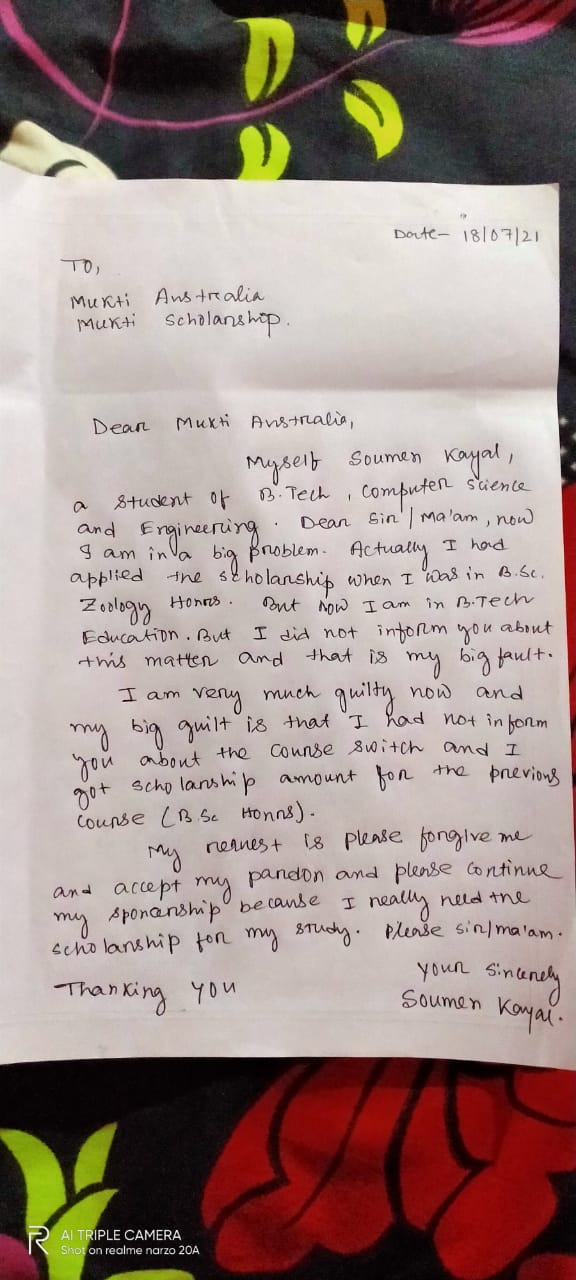 Date- 18/07/21
To,
Mukti Australia
Mukti Scholarship.
Dear Mukti Australia,
Myself Soumen Kayal,
a Student of B.Tech, Computer Science
and Engineering. Dear Sir/Ma'am, now
I am in a big problem. Actually I had
applied the scholarship when I was in B.Sc.
Zoology Honrs. But now I am in B.Tech
Education. But I did not inform you about
this matter and that is my big fault.
I am very much guilty now and
my big guilt is that I had not inform
you about the Course switch and I
got scholarship amount for the previous
course (B.Sc Honrs).
My request is please forgive me
and accept my pardon and please Continue
my sponcership because I really need the
scholarship for my study. Please sir/ma'am.
Your Sincerely
Thanking you
Soumen Kayal.
AI TRIPLE CAMERA
Shot on realme narzo 20A